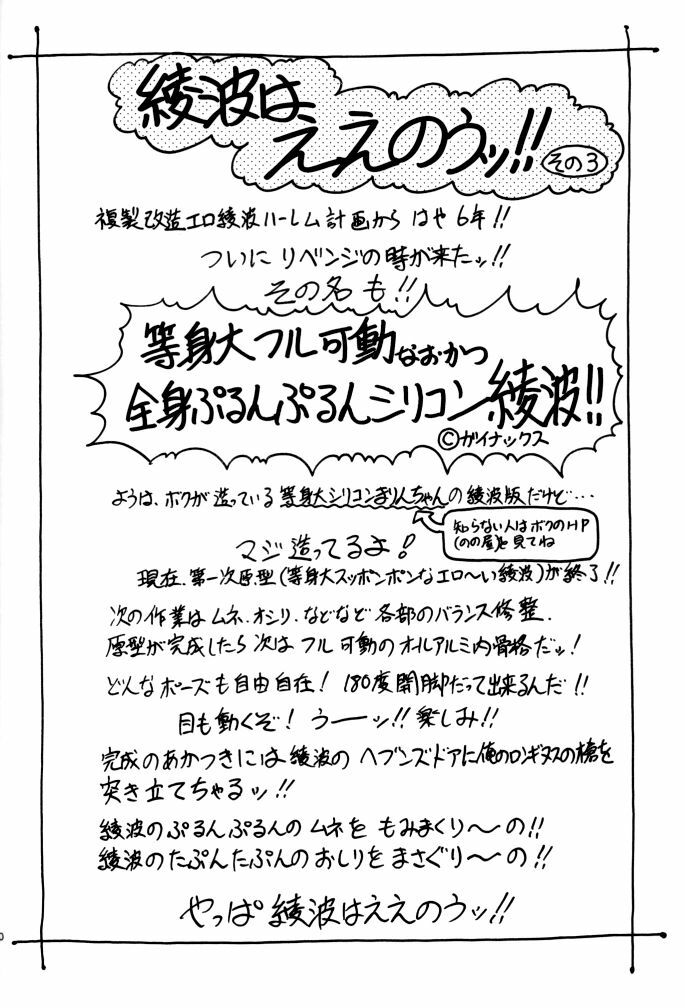 綾波は、
ええのうッ!!
その3
複製改造エロ綾波ハーレム計画から はや 6年!!
ついに リベンジの時が来たッ!!
その名 も!!
等身大フル可動なおかつ
全身ぷるんぷるんシリコン綾波!!
©ガイナックス
ようは、ボクが造っている等身大シリコンまりんちゃんの綾波版だけど…
知らない人はボクのHP
(のの屋)を見てね
マジ造ってるよ!
現在、第一次原型(等身大スッポンポンなエロ〜い綾波)が終了!!
次の作業はムネ、オシリ、などなど各部のバランス修整、
原型が完成したら次は フル可動のオールアルミ内骨格だッ!
どんなポーズも自由自在! 180度開脚だって出来るんだ!!
目も動くぞ! うーーッ!! 楽しみ!!
完成のあかつきには綾波の ヘブンズドアに俺のロンギヌスの槍を
突き立てちゃるッ!!
綾波のぷるんぷるんのムネを もみまくり〜の!!
綾波のたぷんたぷんのおしりを まさぐり〜の!!
やっぱ綾波はええのうッ!!